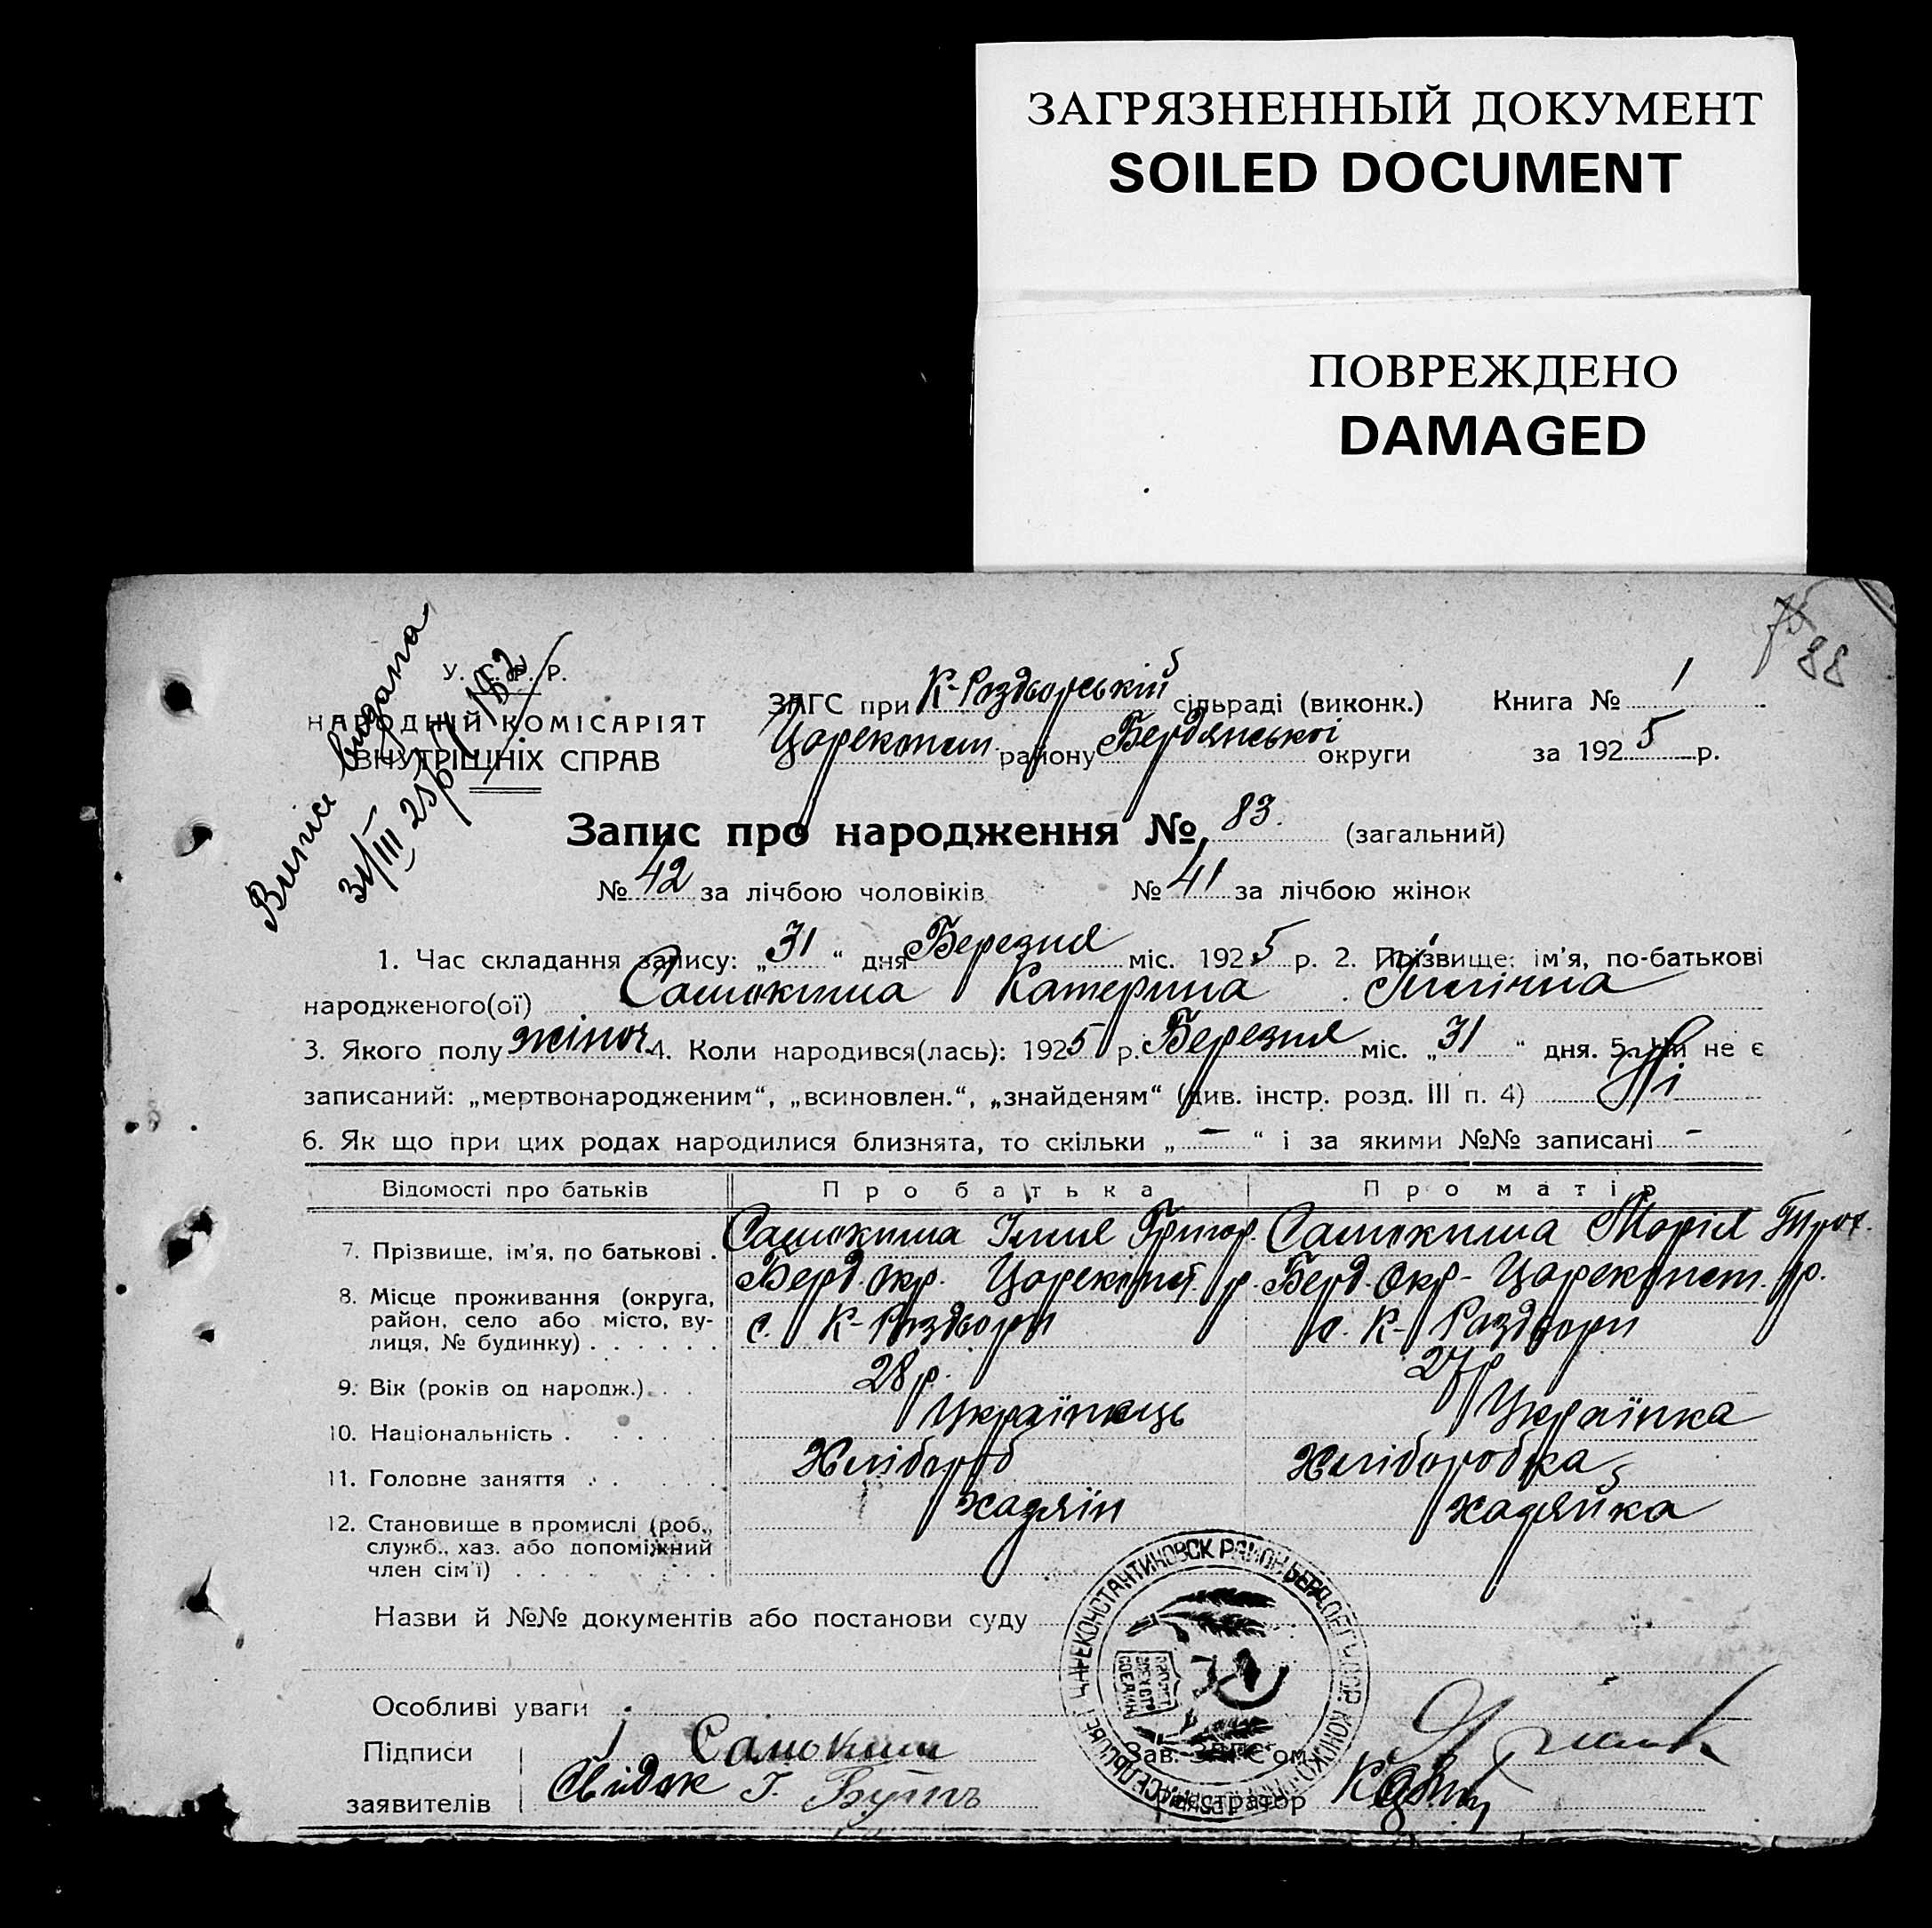 ЗАГРЯЗНЕННЫЙ ДОКУМЕНТ
SOILED DOCUMENT
ПОВРЕЖДЕНО
DAMAGED
88
Випись видана
31/III 25р
У. С. Р. Р.
НАРОДНІЙ КОМІСАРІЯТ
ВНУТРІШНІХ СПРАВ
ЗАГС при К-Роздорській сільраді (виконк.) Книга № 1
Цареконст. району Бердянської округи за 1925 р.
Запис про народження № 83. (загальний)
№ 42 за лічбою чоловіків № 41 за лічбою жінок
1. Час складання запису: „31“ дня Березня міс. 1925 р. 2. Прізвище: ім'я, по-батькові
народженого(ої) Самокиша Катерина Іллінічна
3. Якого полу жіноч. 4. Коли народився(лась): 1925 р. Березня міс. „31“ дня. 5. Чи не є
записаний: „мертвонародженим“, „всиновлен.“, „знайденям“ (див. інстр. розд. III п. 4) Ні
6. Як що при цих родах народилися близнята, то скільки „ — “ і за якими №№ записані -
Відомості про батьків Про батька Про матір
7. Прізвище, ім'я, по батькові . Самокиша Ілля Григор. Самокиша Марія Трох.
8. Місце проживання (округа, Берд. окр. Цареконст. р. Берд. Окр- Цареконст. р.
район, село або місто, ву-
лиця, № будинку) . . . . . . с. К-Роздори с. К-Роздори
9. Вік (років од народж.) . . 28 р. 27 р
10. Національність . . . . . Українець Українка
11. Головне заняття . . . . . Хлібороб Хліборобка
12. Становище в промислі (роб., хазяїн хазяйка
служб., хаз. або допоміжний
член сім'ї) . . . . . . . .
Назви й №№ документів або постанови суду
Особливі уваги
Підписи Самокиш Зав. ЗАГС'ом
заявителів Свідок Г. Бутъ Реєстратор